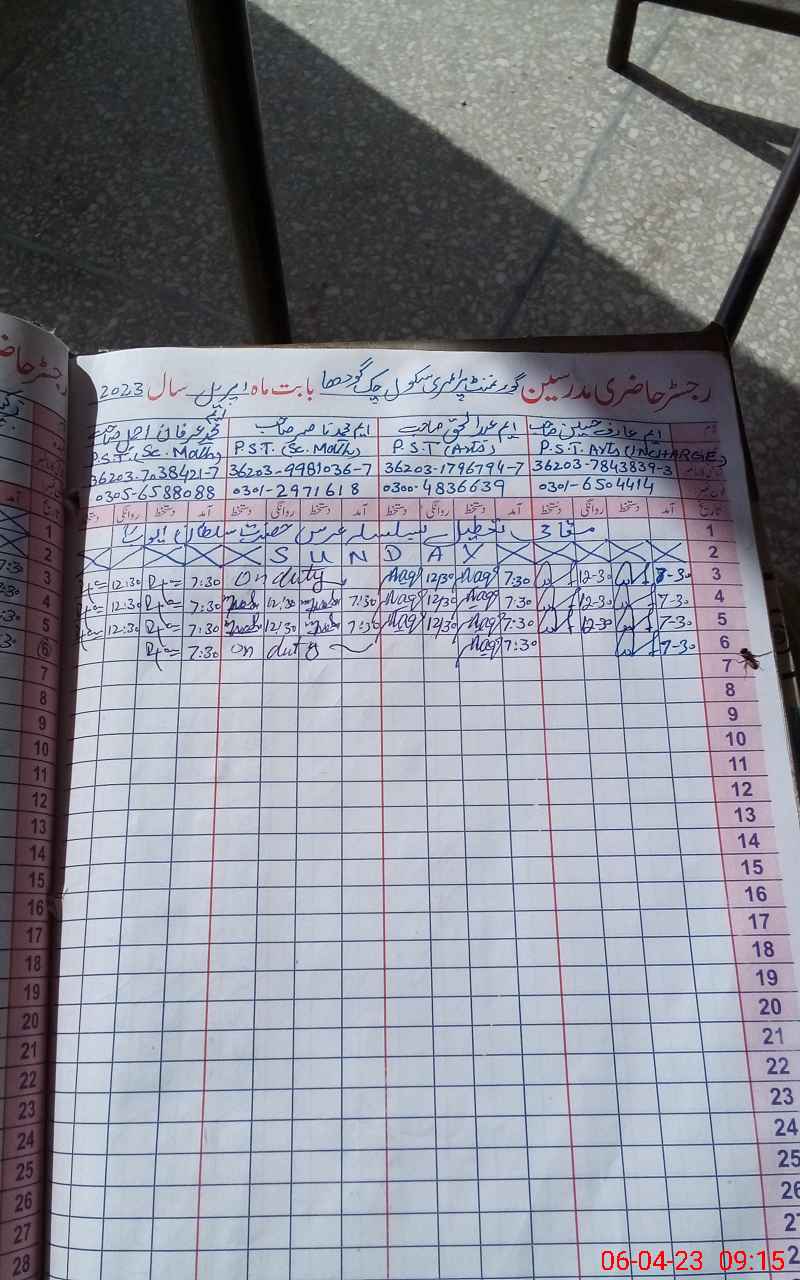 رجسٹر حاضری مدرسین گورنمنٹ پرائمری سکول چک گودھا بابت ماہ اپریل سال 2023
نام ایم عارف حسین صاحب ایم عبدالحق صاحب ایم محمد ناصر صاحب محمد عرفان اجمل صاحب
P.S.T. Arts (INCHARGE) P.S.T (Arts) P.S.T. (Sc. Math) P.S.T. (Sc. Math)
36203-7843839-3 36203-1796794-7 36203-9981036-7 36203-7038421-7
0301-6504414 0300-4836639 0301-2971618 0305-6588088
تاریخ آمد دستخط روانگی دستخط آمد دستخط روانگی دستخط آمد دستخط روانگی دستخط آمد دستخط روانگی دستخط
1 مقامی تعطیل بسلسلہ عرس حضرت سلطان ایوب
2 SUNDAY
3 7-30 12-30 7:30 12/30 On duty 7:30 12:30
4 7-30 12-30 7:30 12/30 7:30 12:30 7:30 12:30
5 7-30 12-30 7:30 12/30 7:30 12/30 7:30 12:30
6 7-30 7:30 on duty 7:30
7
8
9
10
11
12
13
14
15
16
17
18
19
20
21
22
23
24
25
26
27
06-04-23 09:15
رجسٹر حاضر
آمد تاریخ
1
2
3
4
5
6
7
8
9
10
11
12
13
14
15
16
17
18
19
20
21
22
23
24
25
26
27
28